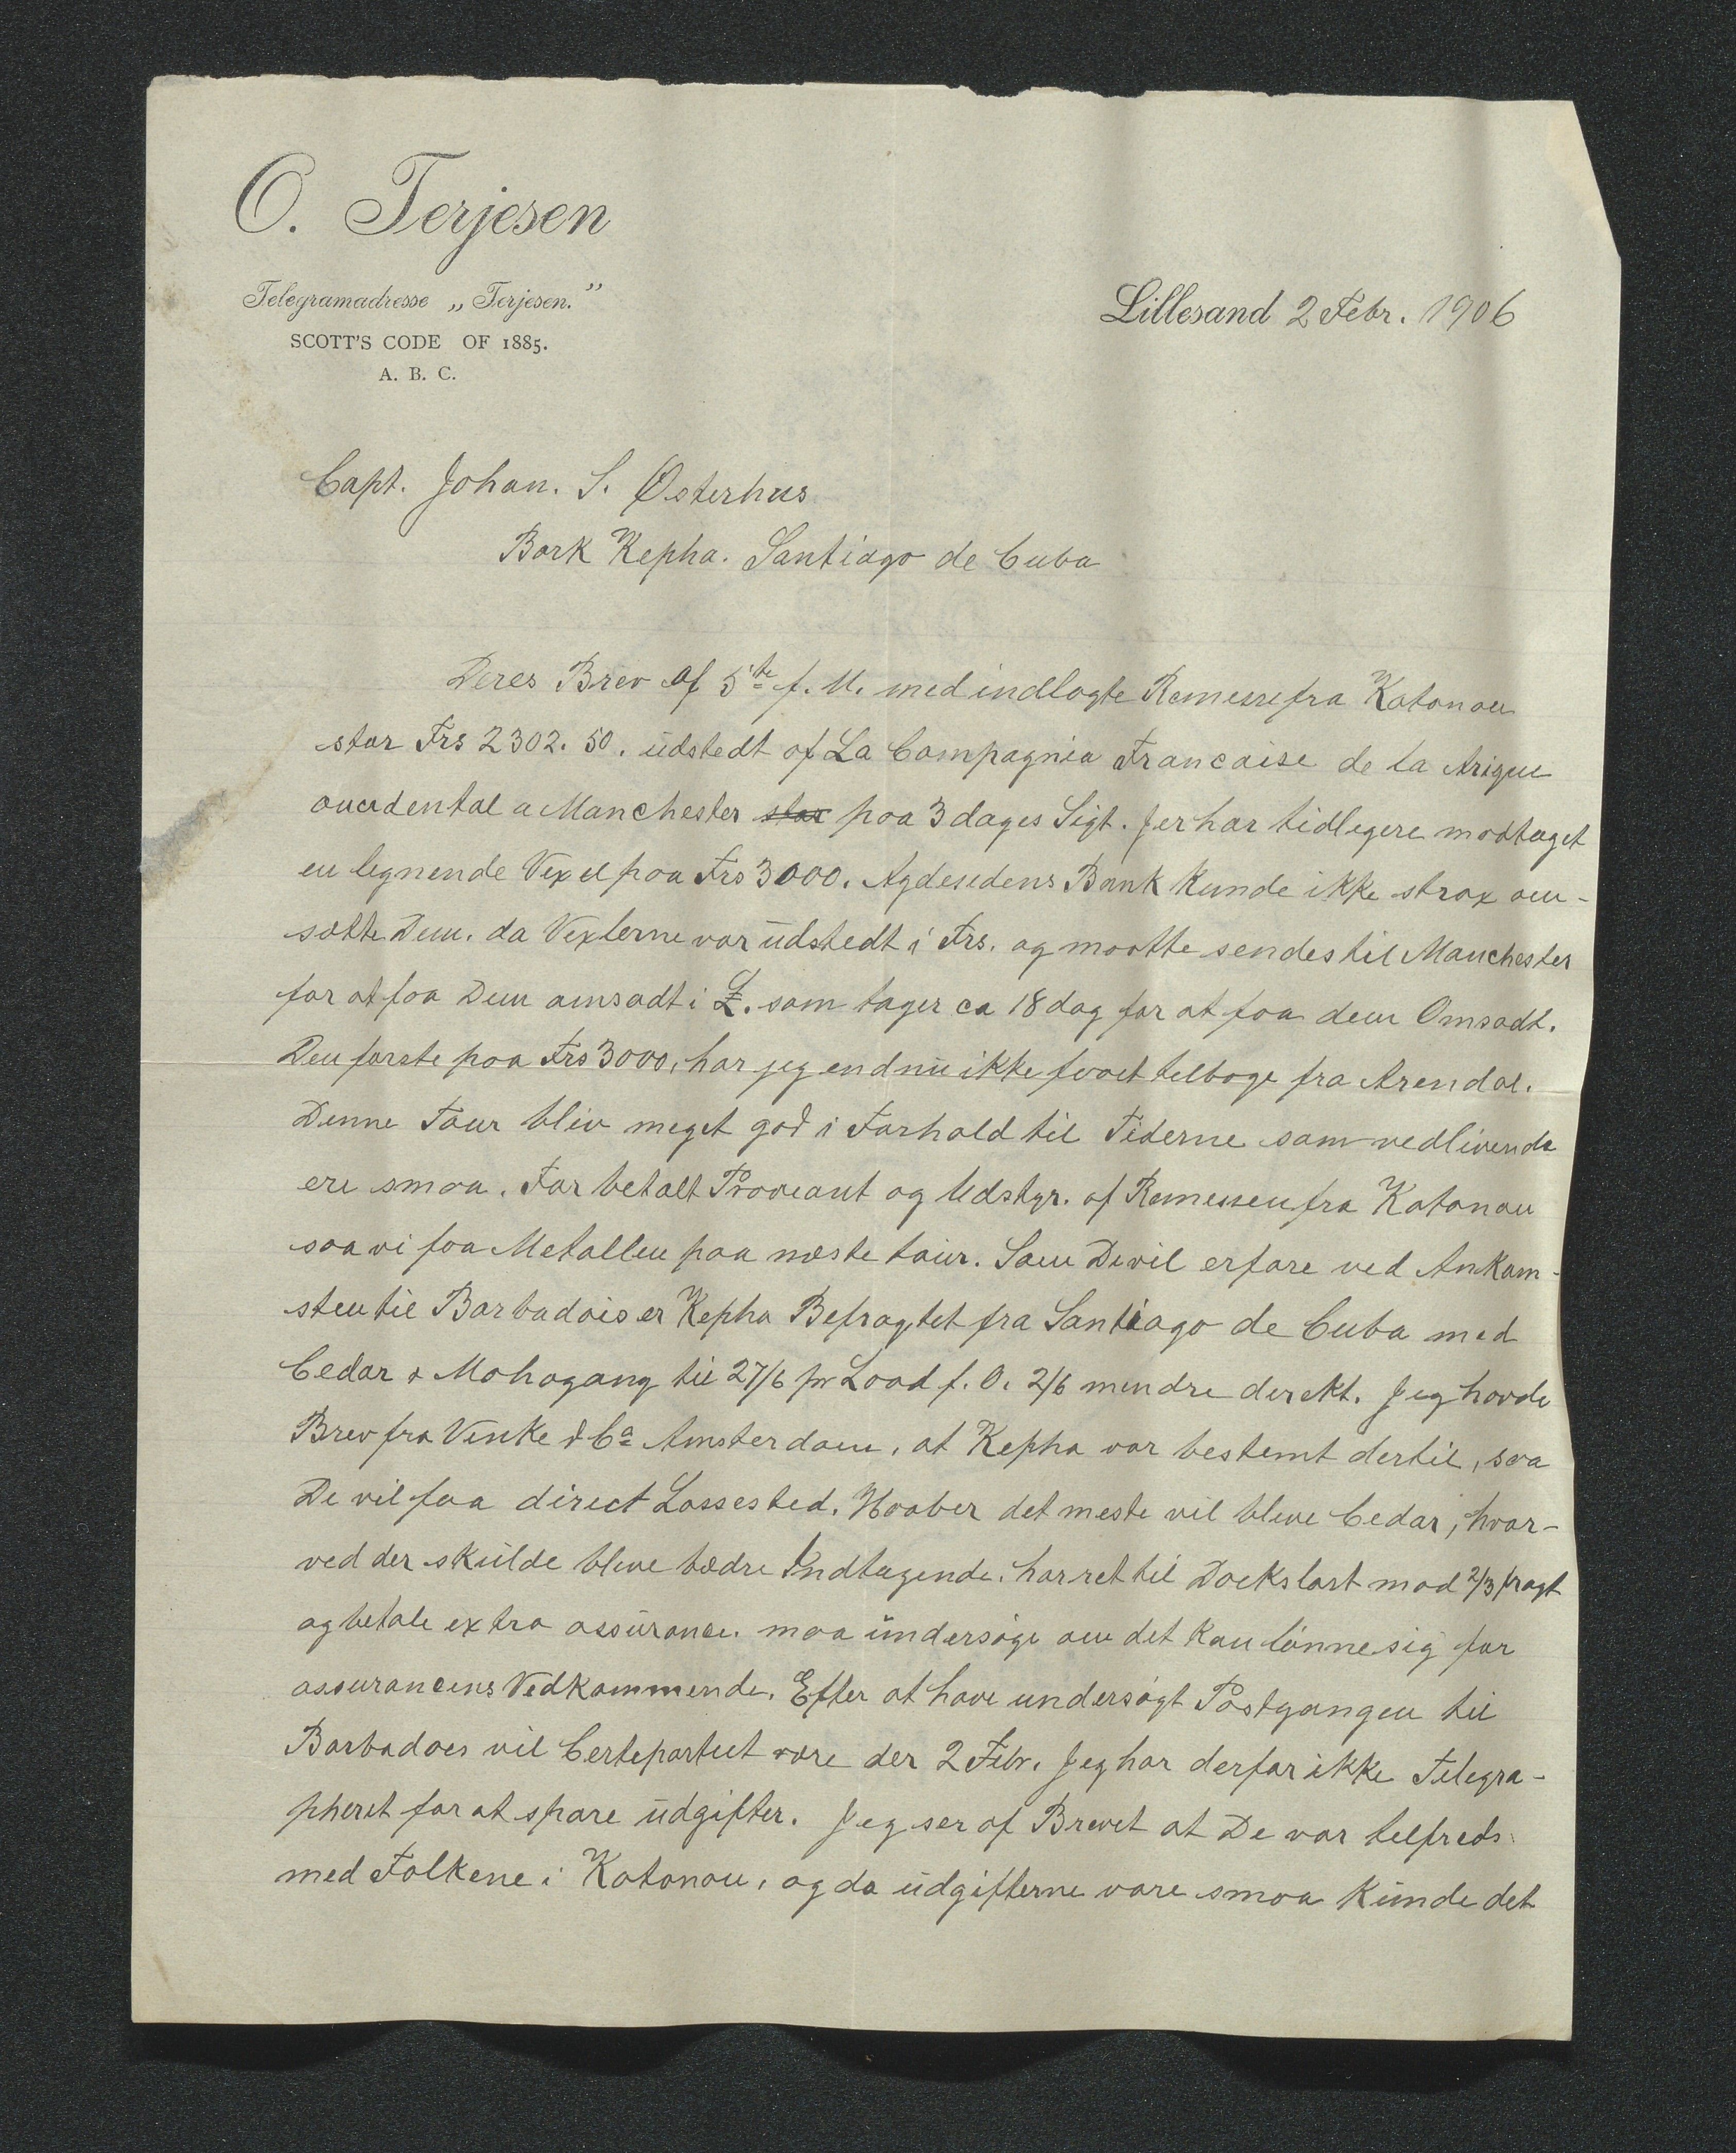 O. Terjesen
Telegramadresse „Terjesen."
SCOTT'S CODE OF 1885.
A. B. C.
Lillesand 2 Febr. 1906
Capt. Johan. S. Østerhus
Bark Kepha. Santiago de Cuba
Deres Brev af 5te f. M. med indlagte Remesse fra Kotonou
stor Frs 2302.50. udstedt af La Compagnia Francaise de la
a Manchester stor paa 3 dages Sigt. Jer har tidligere modtaget
en lignende Vexel paa Frs 3000. Agdesidens Bank kunde ikke strax om-
sætte Dem. da Vexlerne var udstedt i Frs. og maatte sendes til Manchester
for at faa Dem omsadt i £. som tager ca 18 dag for at faa dem Omsadt.
Den første paa Frs 3000, har jeg endnu ikke faaet tilbage fra Arendal.
Denne Tour bliv meget god i Forhold til Tiderne som vedlivende
ere smaa. Far betalt Proveant og Udstyr. af Remessen fra Kotonou
saa vi faa Metallen paa næste tour. Som De vil erfare ved Ankom-
sten til Barbadois er Kepha Befragtet fra Santiago de Cuba med
Cedar & Mohogang til 27/6 pr Load f. O. 2/6 mindre direkt. Jeg havde
Brev fra Vinke & Co Amsterdam, at Kepha var bestemt dertil, saa
De vil faa direct Lossested. Haaber det meste vil blive Cedar, hvor-
ved der skulde blive bedre Indtagende. har ret til Dækslast mod 2/3 fragt
og betale extra assurance. maa undersøge om det kan lønne sig for
assurancens Vedkommende. Efter at have undersøgt Postgangen til
Barbadoes vil Certepartiet være der 2 Febr. Jeg har derfor ikke Telegra-
pheret for at spare udgifter. Jeg ser af Brevet at De var tilfreds
med Folkene i Kotonou, og da udgifterne vare smaa kunde det